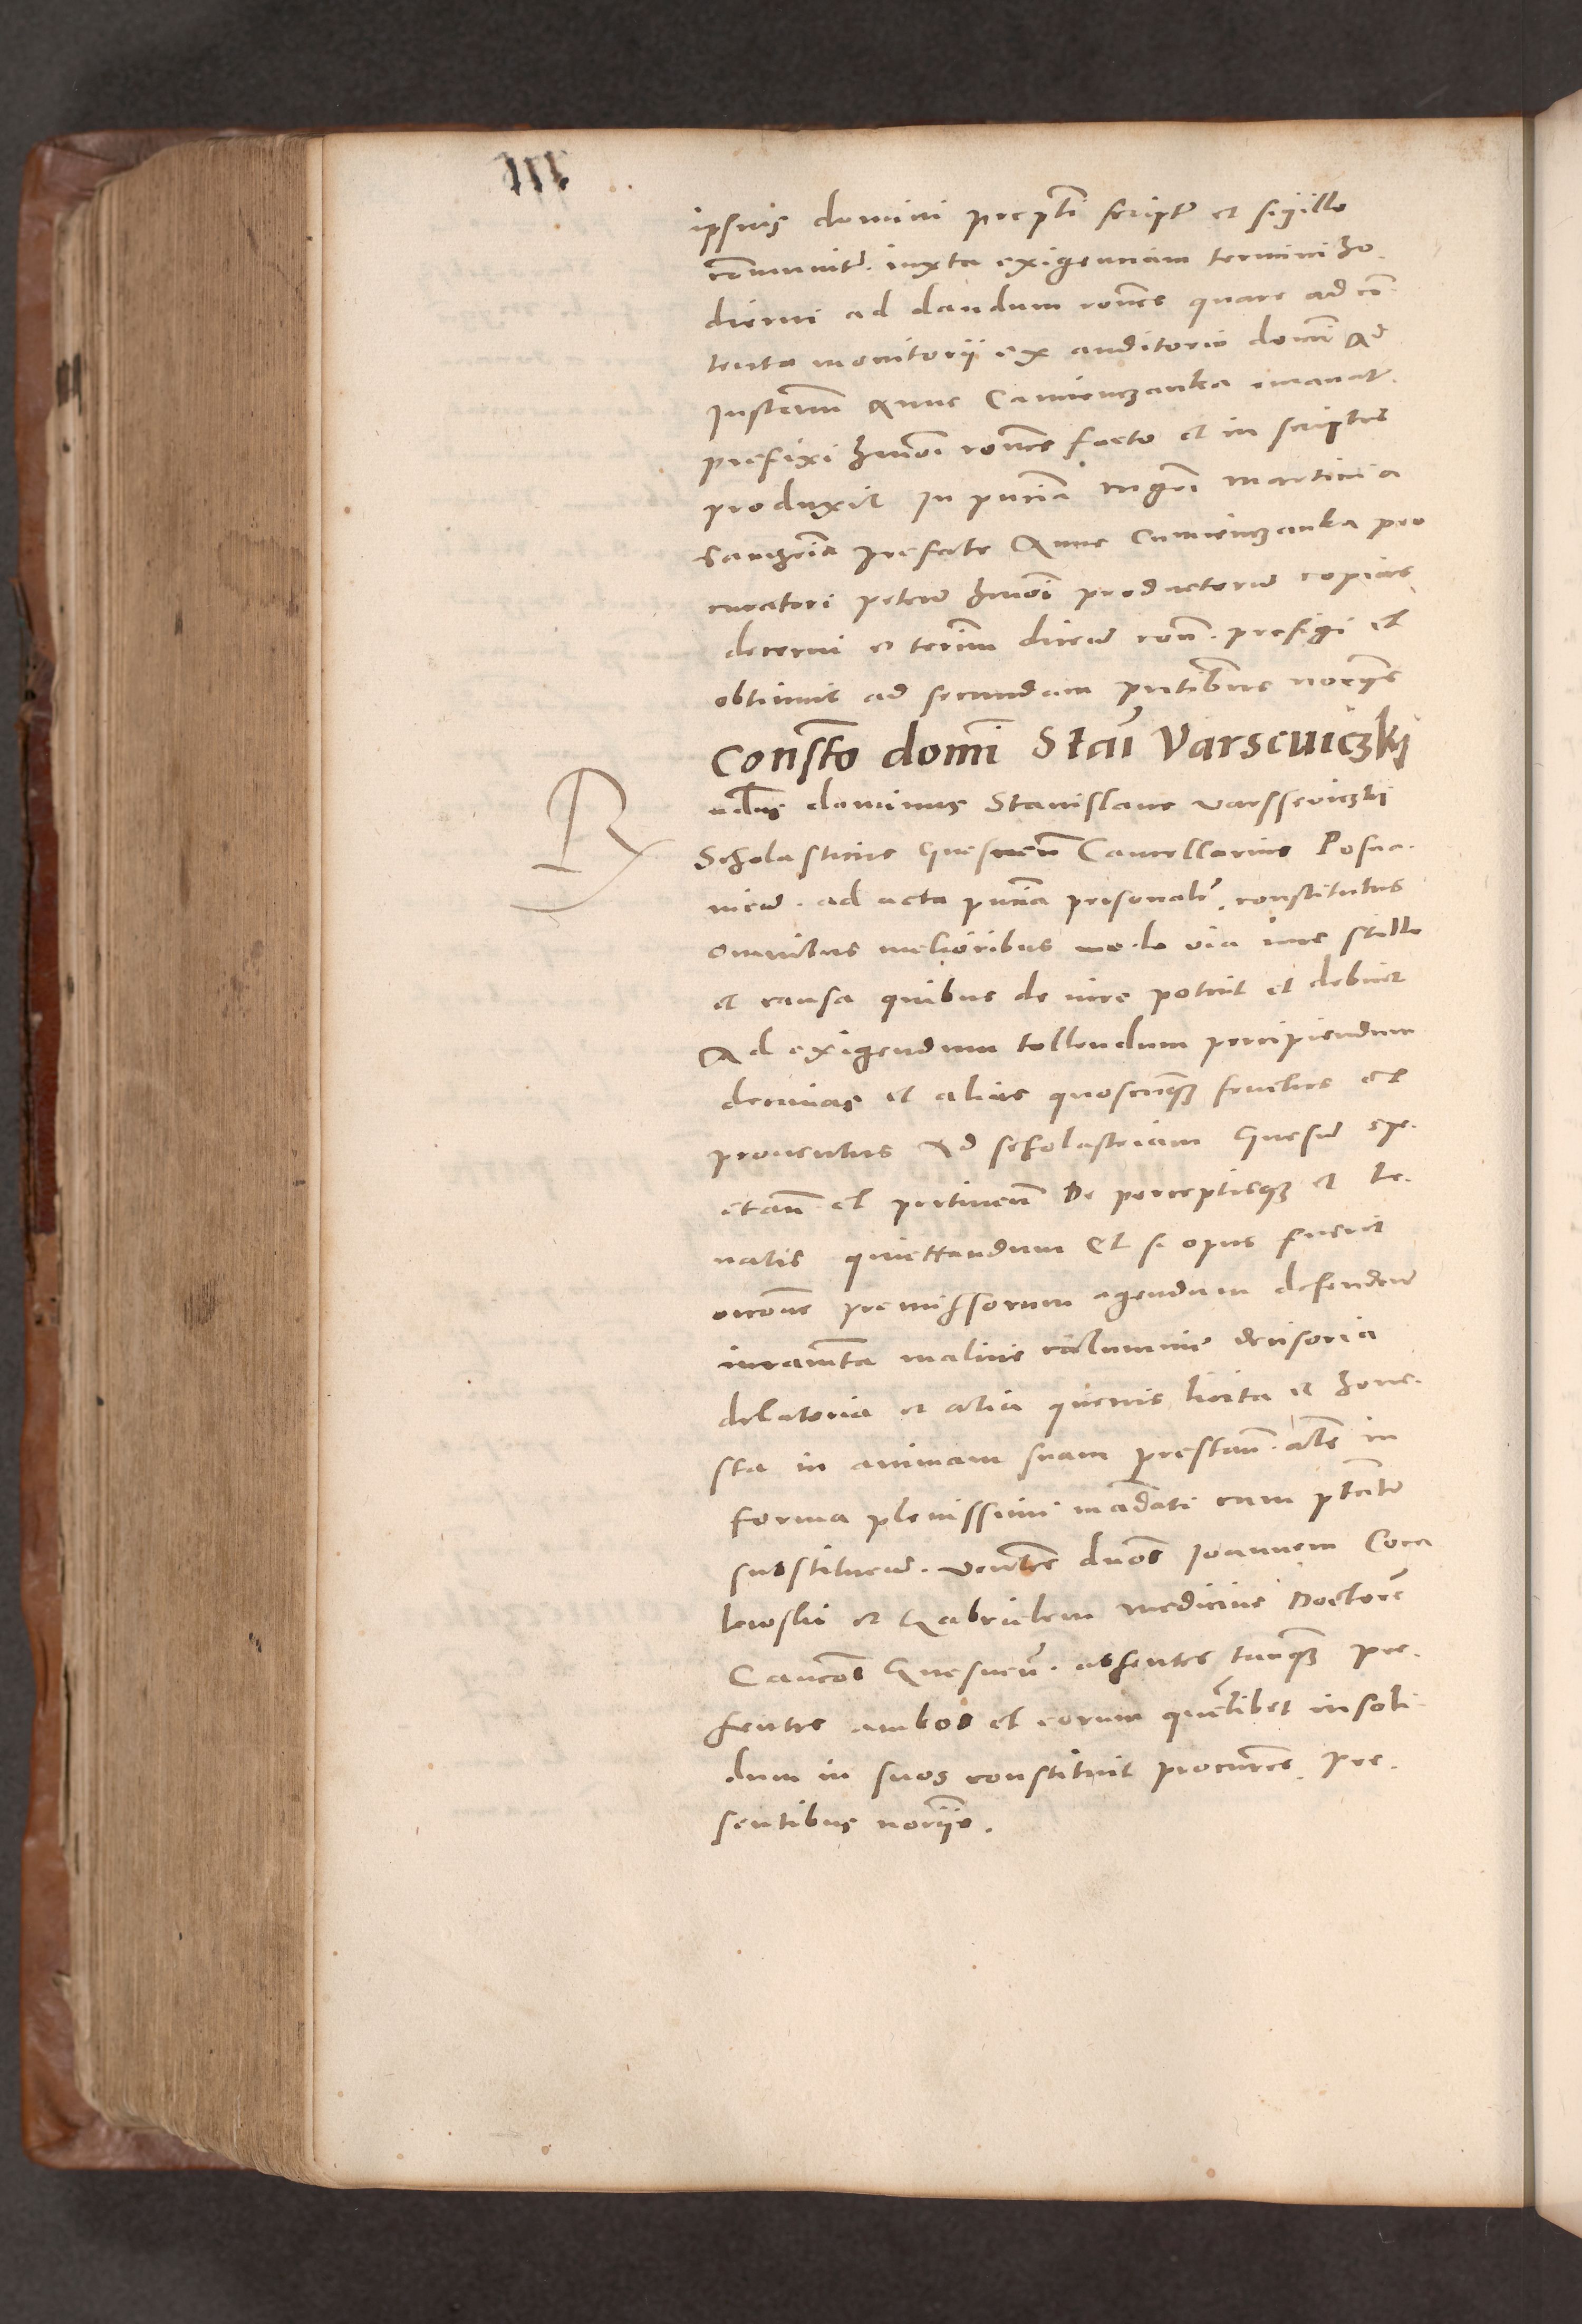 ipsius domini prepti script et sigillo
communit. iuxta exigenciam termini ho.
dierni ad dandum rones quare ad con
tenta monitorii ex auditorio domini Ad
Instanm Anne Camienczanka emanat.
prefixi hmoi rones facto et in scriptis
produxit In pncia mgri Martini a
prefate Anne Camienczanka pro
curatori peten hmoi productorum copias
decerni et termm dicen con. prefigi et
obtinuit ad secundam pntibus notrijs
Constto domi Stai Varscuiczkj
R
ndus dominus Stanislaus Varsseviczki
Scholasticus Gnesnen Cancellarius Posna.
nien. ad acta pncia personalr. constitutus
omnibus melioribus modo via iure stillo
et causa quibus de iure potuit et debuit
Ad exigendum tollendum percipiendum
decimas et alius quoscunqz fructus et
prouentus Ad scholastriam Gnesnen spe.
ctan et pertinen De perceptisqz et le.
uatis quittandum Et si opus fuerit
occone premissorum agendum defenden
iuramta malicie calumnie decisoria
delatoria et alia queuis licita et hone.
sta in animam suam prestan. Ac in
forma plenissimi mandati cum ptate
substituen. Ventes dnos Joannem Coca
lewski et Gabrielem medicine Doctore
Cancos Gnesnen. absentes tanqz pre.
sentes ambos et eorum quelibet insoli
dum in suos constituit procurres. Pre.
sentibus notrijs.